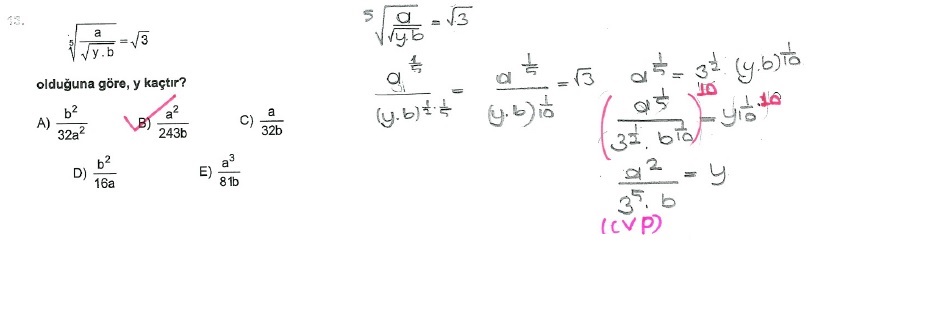 13.
\sqrt[5]{\frac{a}{\sqrt{y.b}}} = \sqrt{3}
olduğuna göre, y kaçtır?
A) \frac{b^2}{32a^2} B) \frac{a^2}{243b} C) \frac{a}{32b}
D) \frac{b^2}{16a} E) \frac{a^3}{81b}
\sqrt[5]{\frac{a}{\sqrt{y.b}}} = \sqrt{3}
\frac{a^{\frac{1}{5}}}{(y.b)^{\frac{1}{2}.\frac{1}{5}}} = \frac{a^{\frac{1}{5}}}{(y.b)^{\frac{1}{10}}} = \sqrt{3}
a^{\frac{1}{5}} = 3^{\frac{1}{2}} . (y.b)^{\frac{1}{10}}
\left(\frac{a^{\frac{1}{5}}}{3^{\frac{1}{2}} . b^{\frac{1}{10}}}\right)^{10} = y^{\frac{1}{10}.10}
\frac{a^2}{3^5 . b} = y
(CVP)